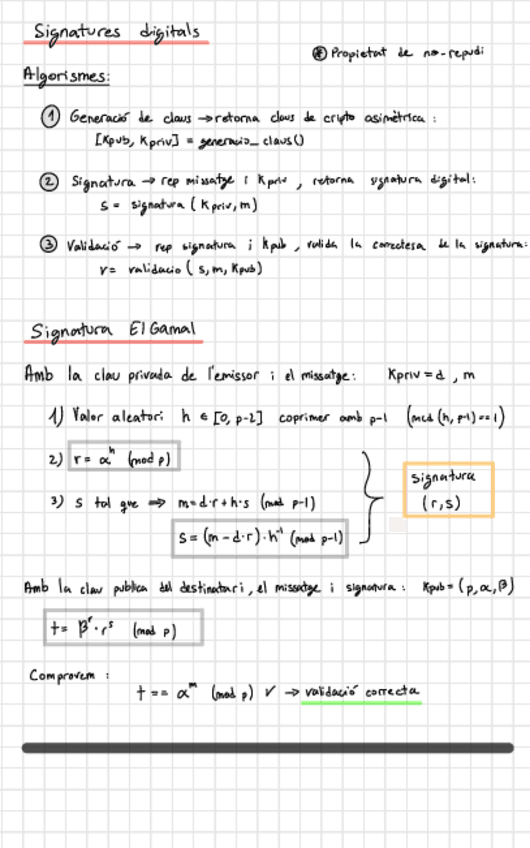 Signatures digitals
⊛ Propietat de no-repudi
Algorismes:
① Generació de claus → retorna claus de cripto asimètrica :
[Kpub, Kpriv] = generacio_claus()
② Signatura → rep missatge i Kpriv , retorna signatura digital:
s = signatura ( Kpriv, m)
③ Validació → rep signatura i Kpub , valida la correctesa de la signatura:
v = validacio ( s, m, Kpub)
Signatura ElGamal
Amb la clau privada de l'emissor i el missatge: Kpriv = d , m
1) Valor aleatori h ∈ [0, p-2] coprimer amb p-1 (mcd (h, p-1) == 1)
2) r = α^h (mod p)
3) s tal que ⇒ m = d·r + h·s (mod p-1)
s = (m - d·r) · h^-1 (mod p-1)
signatura
(r,s)
Amb la clau publica del destinatari, el missatge i signatura : Kpub = (p, α, β)
t = β^r · r^s (mod p)
Comprovem :
t == α^m (mod p) ✓ → validació correcta